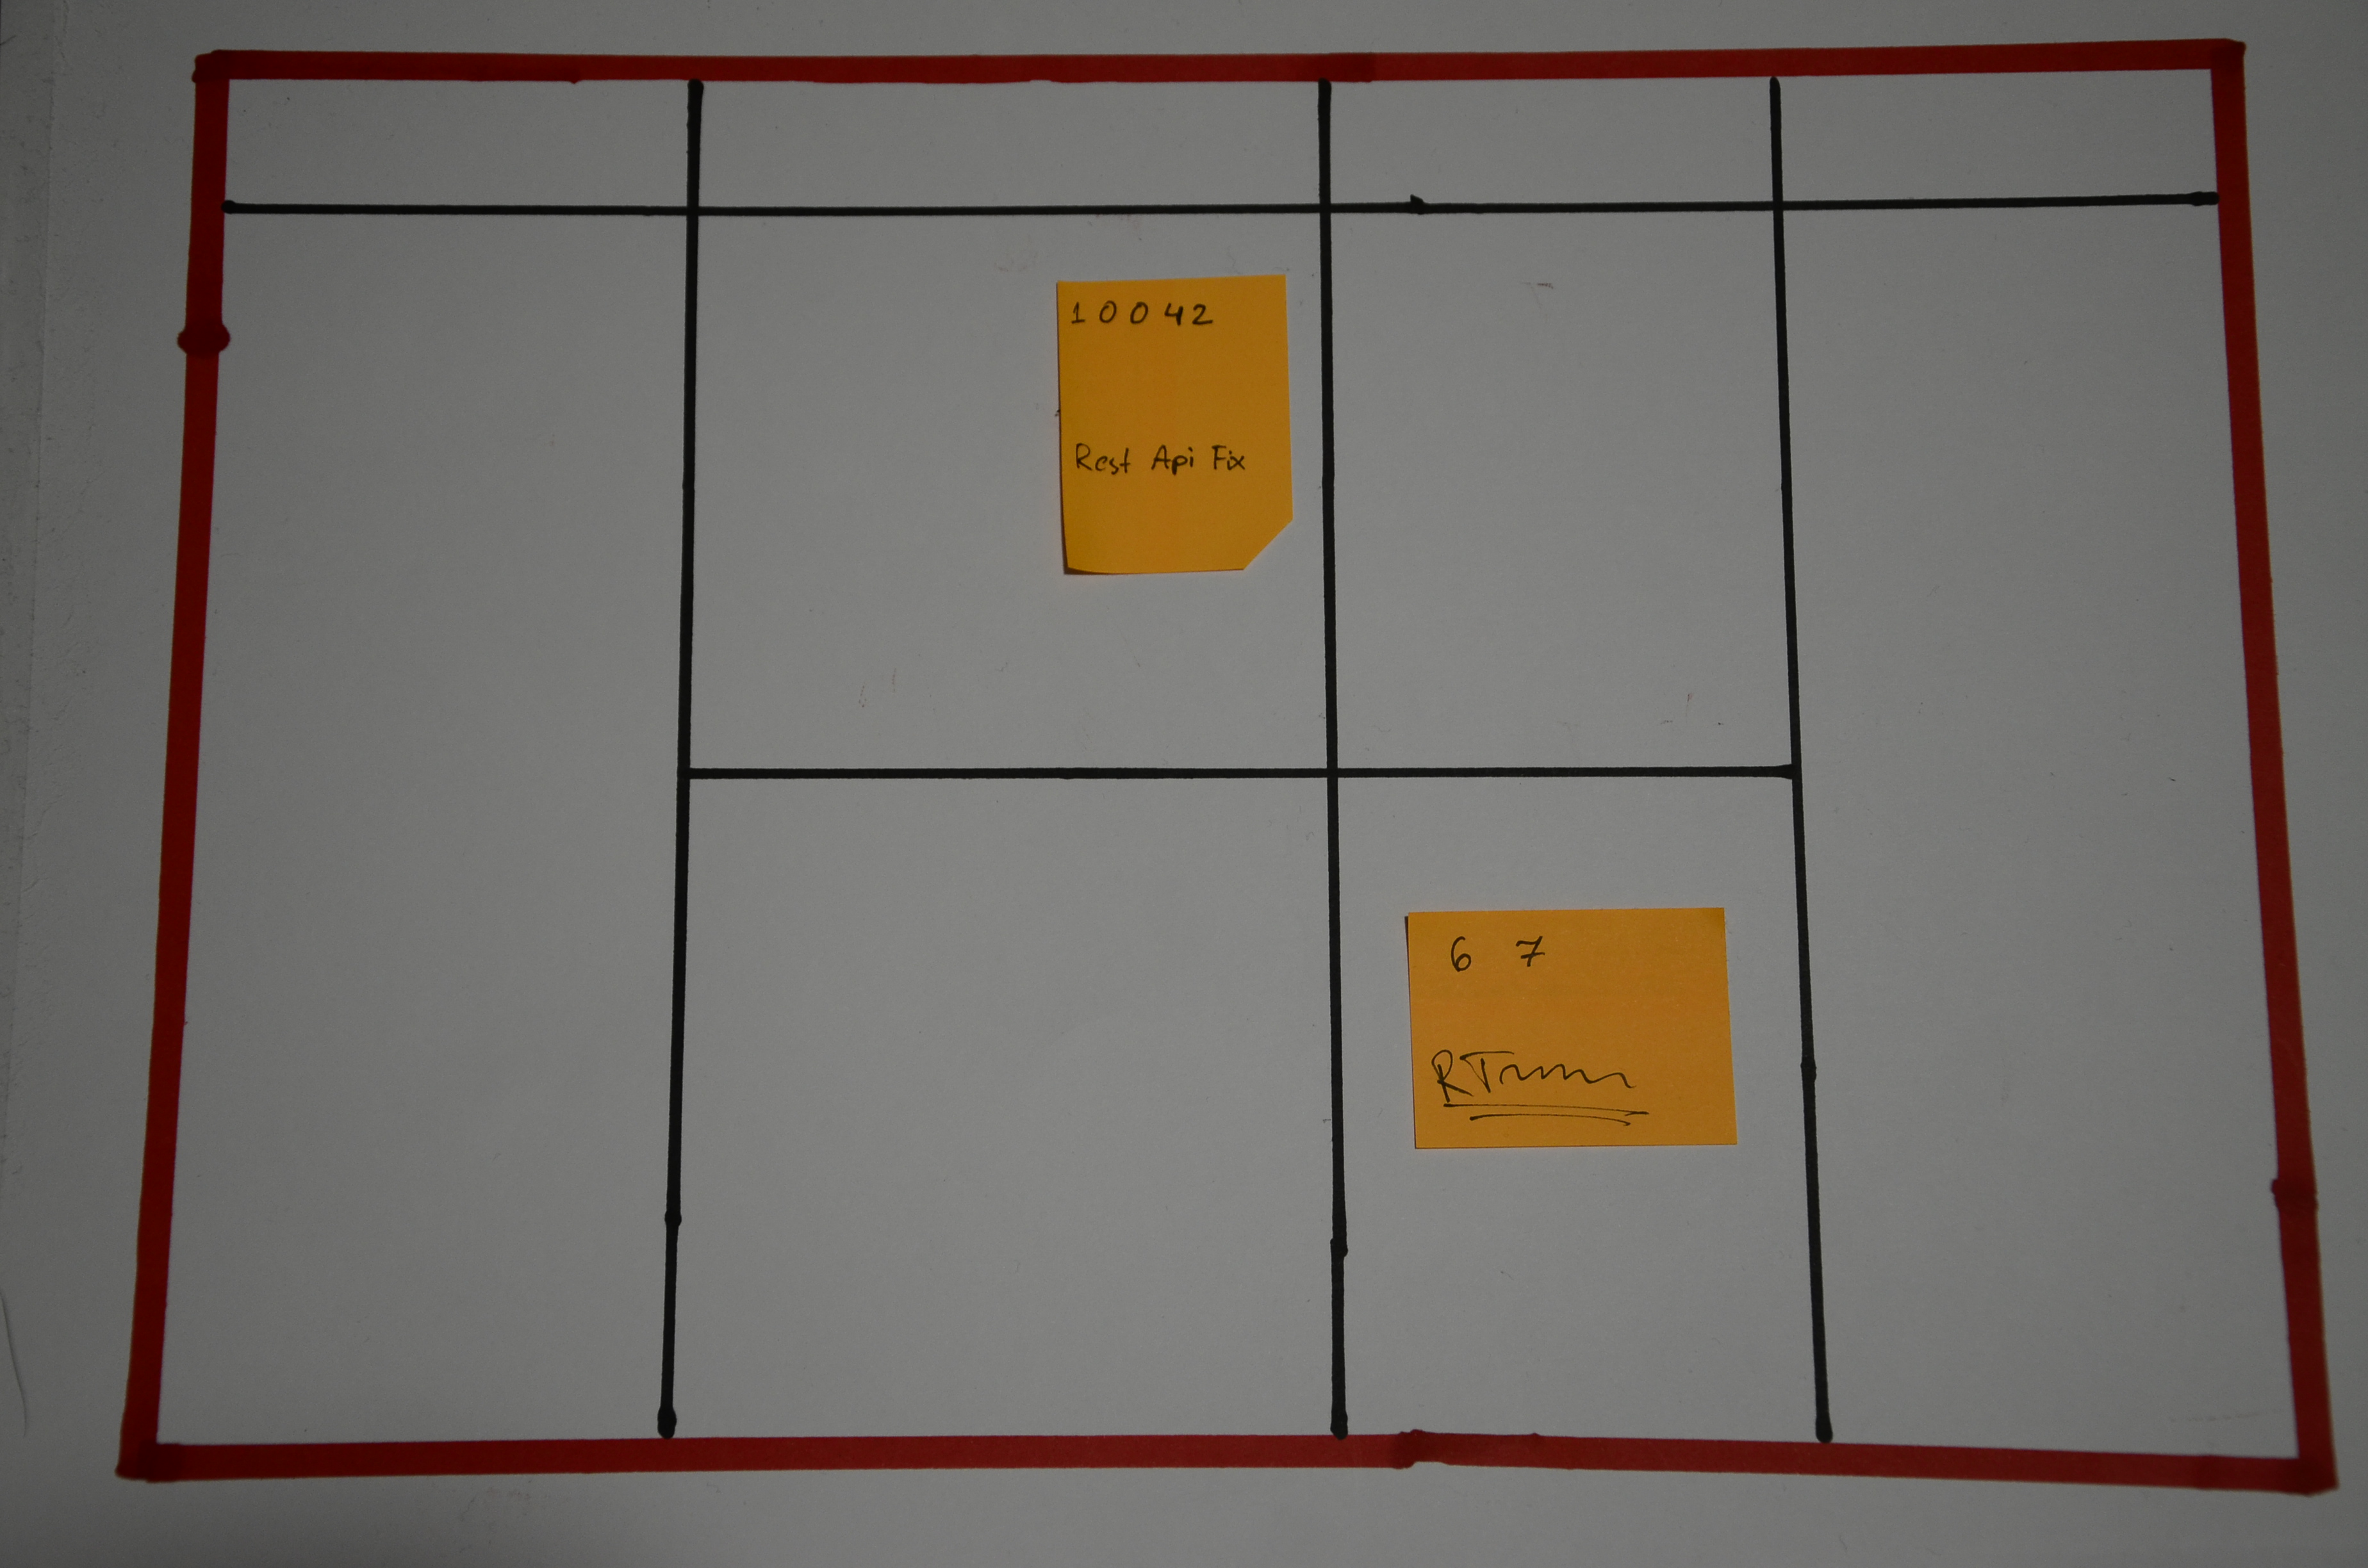 10042
Rest Api Fix
6 7